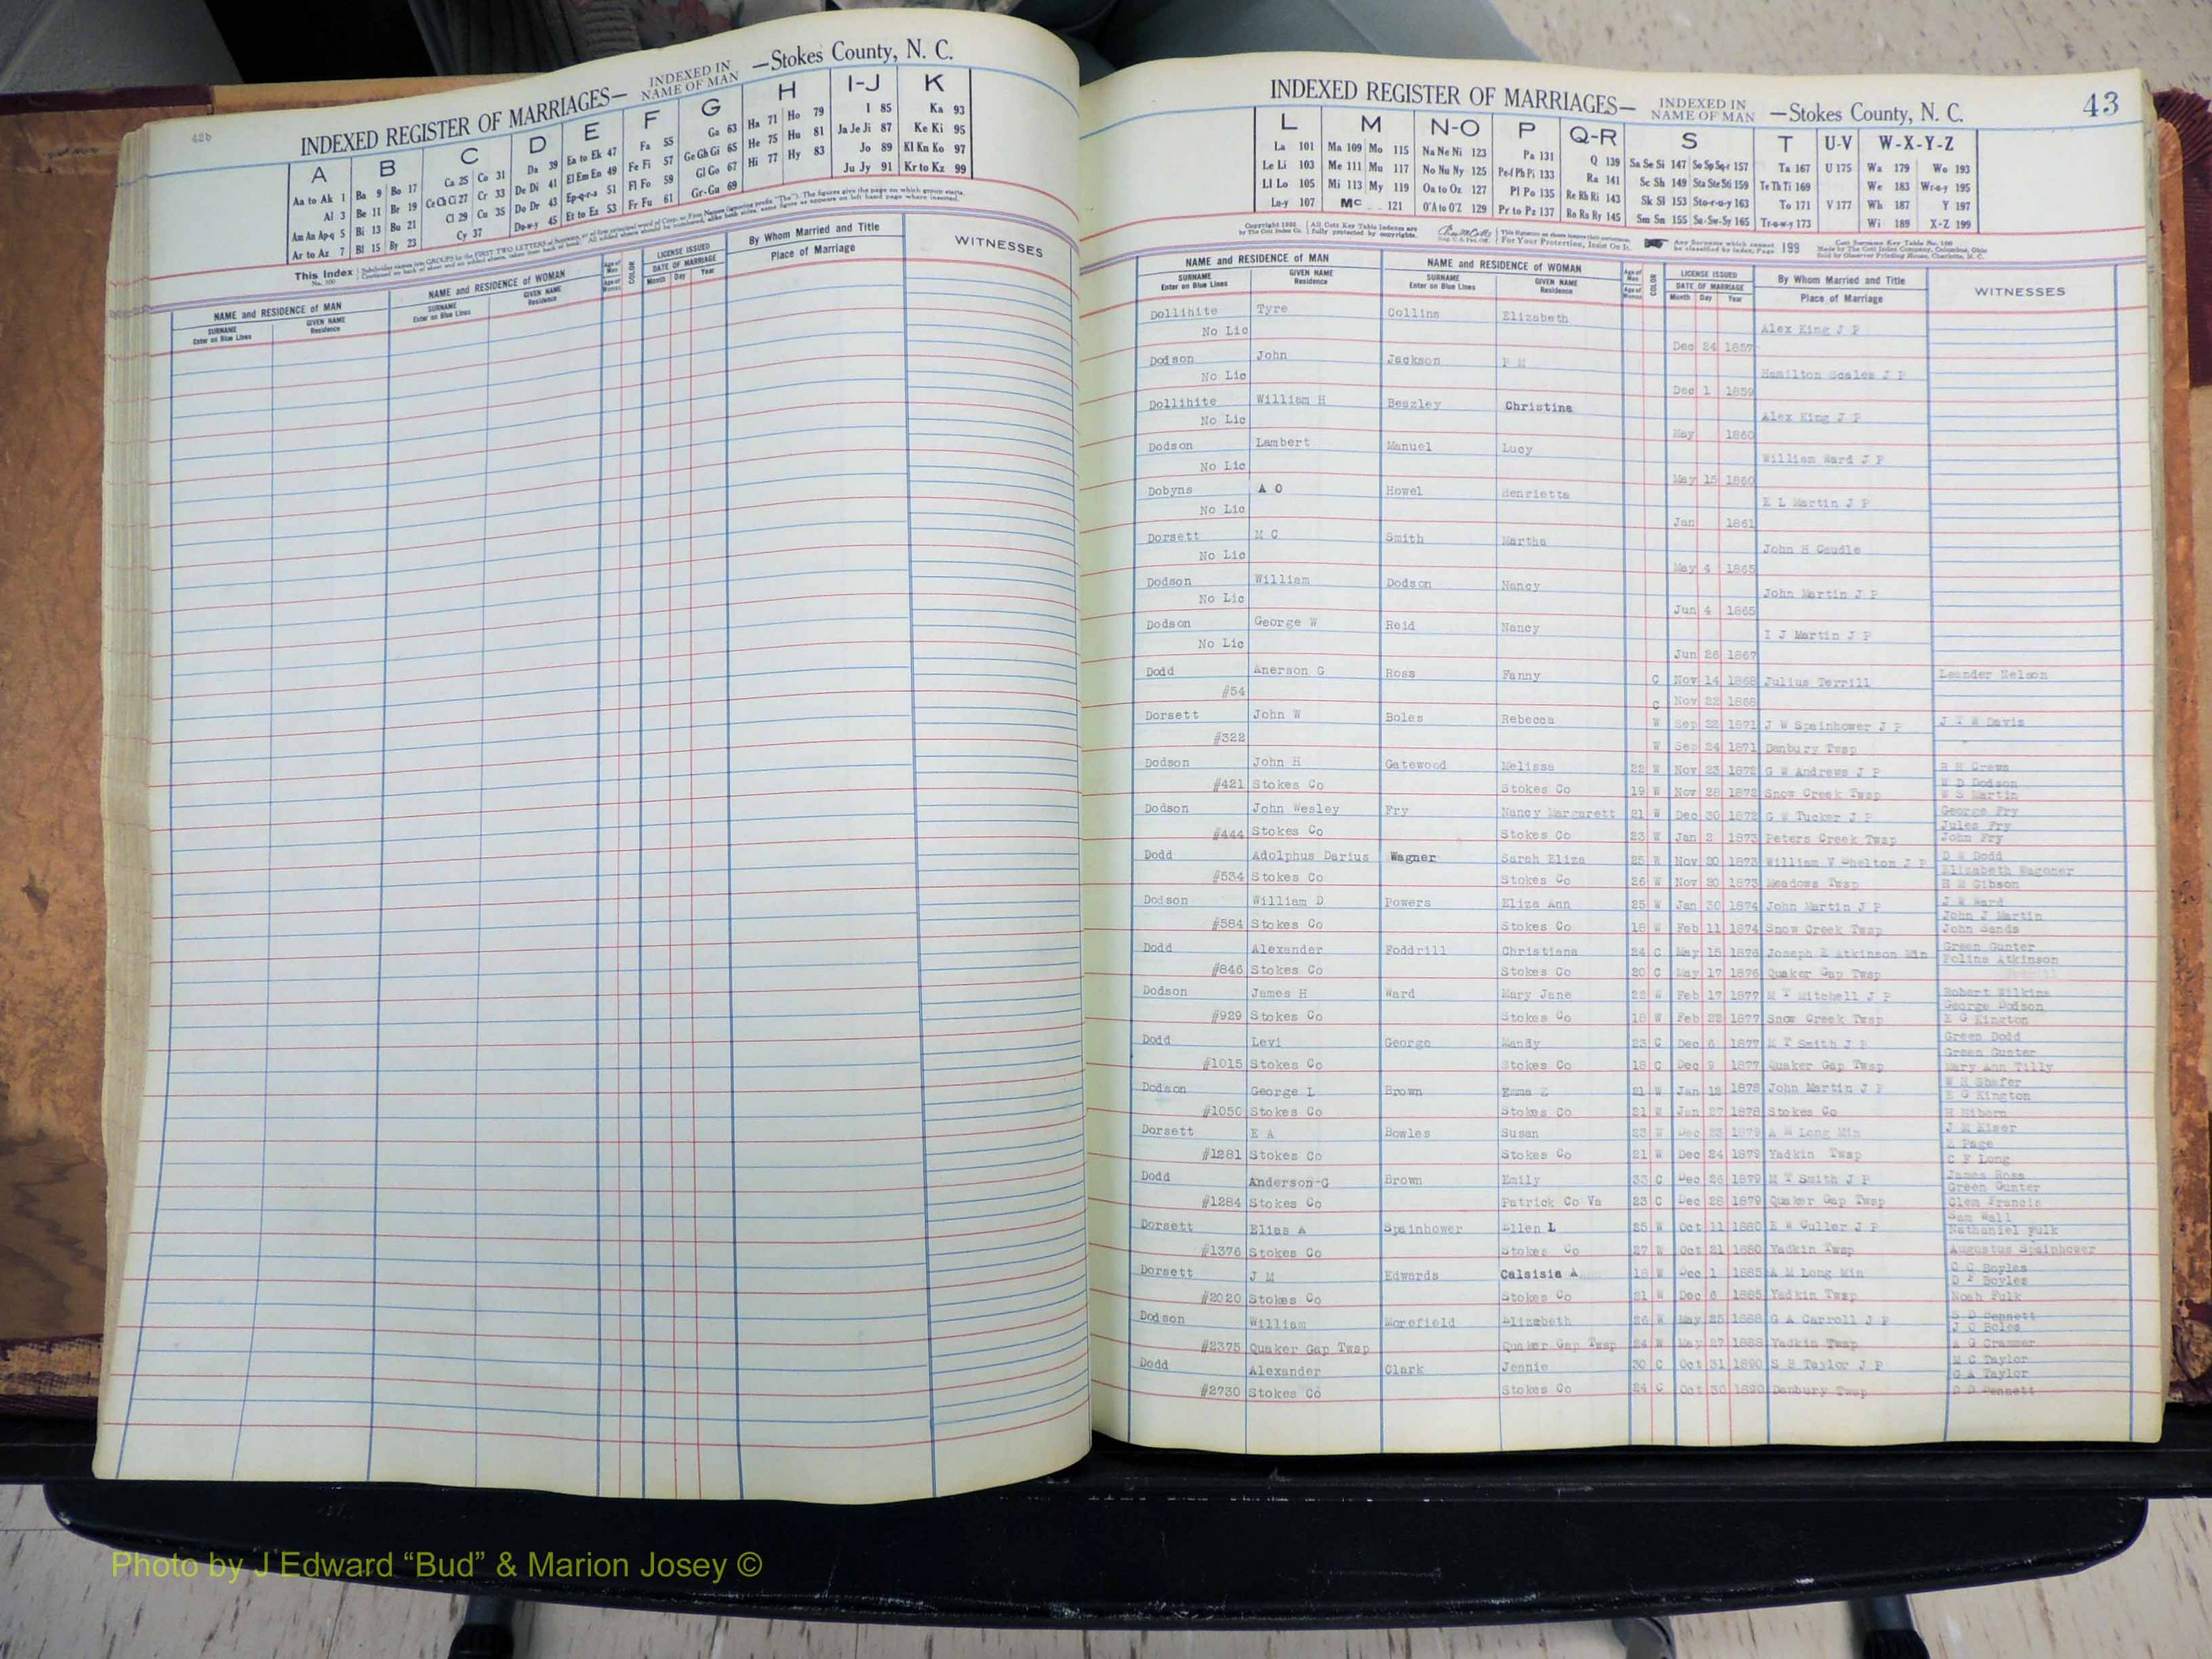 42b
INDEXED REGISTER OF MARRIAGES— INDEXED IN NAME OF MAN —Stokes County, N. C.
A B C D E F G H I-J K
Aa to Ak 1 Ba 9 Bo 17 Ca 25 Co 31 Da 39 Ea to Ek 47 Fa 55 Ga 63 Ha 71 Ho 79 I 85 Ka 93
Al 3 Be 11 Br 19 Ce Ch Ci 27 Cr 33 De Di 41 El Em En 49 Fe Fi 57 Ge Gh Gi 65 He 75 Hu 81 Ja Je Ji 87 Ke Ki 95
Am An Ap-q 5 Bi 13 Bu 21 Cl 29 Cu 35 Do Dr 43 Ep-q-r-s 51 Fl Fo 59 Gl Go 67 Hi 77 Hy 83 Jo 89 Kl Kn Ko 97
Ar to Az 7 Bl 15 By 23 Cy 37 Du-w-y 45 Et to Ez 53 Fr Fu 61 Gr-Gu 69 Ju Jy 91 Kr to Kz 99
This Index No. 100
NAME and RESIDENCE of MAN NAME and RESIDENCE of WOMAN Age of Man Age of Woman COLOR LICENSE ISSUED DATE OF MARRIAGE By Whom Married and Title WITNESSES
SURNAME Enter on Blue Lines GIVEN NAME Residence SURNAME Enter on Blue Lines GIVEN NAME Residence Month Day Year Place of Marriage
INDEXED REGISTER OF MARRIAGES— INDEXED IN NAME OF MAN —Stokes County, N. C. 43
L M N-O P Q-R S T U-V W-X-Y-Z
La 101 Ma 109 Mo 115 Na Ne Ni 123 Pa 131 Q 139 Sa Se Si 147 So Sp Sq-r 157 Ta 167 U 175 Wa 179 Wo 193
Le Li 103 Me 111 Mu 117 No Nu Ny 125 Pe-f Ph Pi 133 Ra 141 Sc Sh 149 Sta Ste Sti 159 Te Th Ti 169 We 183 Wr-u-y 195
Ll Lo 105 Mi 113 My 119 Oa to Oz 127 Pl Po 135 Re Rh Ri 143 Sk Sl 153 Sto-r-u-y 163 To 171 V 177 Wh 187 Y 197
Lu-y 107 Mc 121 O'A to O'Z 129 Pr to Pz 137 Ro Ru Ry 145 Sm Sn 155 Su-Sw-Sy 165 Tr-u-w-y 173 Wi 189 X-Z 199
Copyright 1888 by The Cott Index Co. All Cott Key Table Indexes are fully protected by copyrights. For Your Protection, Insist On It. Any Surname which cannot be classified by index, Page 199 Cott Surname Key Table No. 100 Made by The Cott Index Company, Columbus, Ohio Sold by Observer Printing House, Charlotte, N. C.
NAME and RESIDENCE of MAN NAME and RESIDENCE of WOMAN Age of Man Age of Woman COLOR LICENSE ISSUED DATE OF MARRIAGE By Whom Married and Title WITNESSES
SURNAME Enter on Blue Lines GIVEN NAME Residence SURNAME Enter on Blue Lines GIVEN NAME Residence Month Day Year Place of Marriage
Dollihite Tyre Collins Elizabeth
No Lic Alex King J P
Dec 24 1857
Dodson John Jackson P M
No Lic Hamilton Scales J P
Dec 1 1859
Dollihite William H Beazley Christina
No Lic Alex King J P
May 1860
Dodson Lambert Manuel Lucy
No Lic William Ward J P
May 15 1860
Dobyns A O Howel Henrietta
No Lic E L Martin J P
Jan 1861
Dorsett M C Smith Martha
No Lic John H Caudle
May 4 1865
Dodson William Dodson Nancy
No Lic John Martin J P
Jun 4 1865
Dodson George W Reid Nancy
No Lic I J Martin J P
Jun 26 1867
Dodd Anerson G Ross Fanny C Nov 14 1868 Julius Terrill Leander Nelson
#54 C Nov 22 1868
Dorsett John W Boles Rebecca W Sep 22 1871 J W Spainhower J P J T W Davis
#322 W Sep 24 1871 Danbury Twsp
Dodson John H Gatewood Melissa 22 W Nov 23 1872 G W Andrews J P R H Crews
W D Dodson
#421 Stokes Co Stokes Co 19 W Nov 28 1872 Snow Creek Twsp W S Martin
Dodson John Wesley Fry Nancy Margarett 21 W Dec 30 1872 G W Tucker J P George Fry
Jules Fry
#444 Stokes Co Stokes Co 23 W Jan 2 1873 Peters Creek Twsp John Fry
Dodd Adolphus Darius Wagner Sarah Eliza 25 W Nov 20 1873 William V Shelton J P D W Dodd
Elizabeth Wagoner
#534 Stokes Co Stokes Co 26 W Nov 20 1873 Meadows Twsp H M Gibson
Dodson William D Powers Eliza Ann 25 W Jan 30 1874 John Martin J P J W Ward
John J Martin
#584 Stokes Co Stokes Co 18 W Feb 11 1874 Snow Creek Twsp John Sands
Dodd Alexander Foddrill Christiana 24 C May 15 1876 Joseph E Atkinson Min Green Gunter
Polina Atkinson
#846 Stokes Co Stokes Co 20 C May 17 1876 Quaker Gap Twsp
Dodson James H Ward Mary Jane 22 W Feb 17 1877 M T Mitchell J P Robert Wilkins
George Dodson
#929 Stokes Co Stokes Co 18 W Feb 22 1877 Snow Creek Twsp E G Kington
Dodd Levi George Mandy 23 C Dec 6 1877 M T Smith J P Green Dodd
Green Gunter
#1015 Stokes Co Stokes Co 18 C Dec 9 1877 Quaker Gap Twsp Mary Ann Tilly
Dodson George L Brown Emma Z 21 W Jan 12 1878 John Martin J P W H Shafer
E G Kington
#1050 Stokes Co Stokes Co 21 W Jan 27 1878 Stokes Co H Hiborn
Dorsett E A Bowles Susan 23 W Dec 23 1879 A M Long Min J M Kiser
E Page
#1281 Stokes Co Stokes Co 21 W Dec 24 1879 Yadkin Twsp C F Long
Dodd Anderson-G Brown Emily 33 C Dec 26 1879 M T Smith J P James Ross
Green Gunter
#1284 Stokes Co Patrick Co Va 23 C Dec 28 1879 Quaker Gap Twsp Clem Francis
Dorsett Elias A Spainhower Ellen L 25 W Oct 11 1880 E W Culler J P Sam Wall
Nathaniel Fulk
#1376 Stokes Co Stokes Co 27 W Oct 21 1880 Yadkin Twsp Augustus Spainhower
Dorsett J M Edwards Calsisia A 18 W Dec 1 1885 A M Long Min C C Boyles
D F Boyles
#2020 Stokes Co Stokes Co 21 W Dec 6 1885 Yadkin Twsp Noah Fulk
Dodson William Morefield Elizabeth 26 W May 25 1888 G A Carroll J P S D Bennett
J C Boles
#2375 Quaker Gap Twsp Quaker Gap Twsp 24 W May 27 1888 Yadkin Twsp A G Crammer
Dodd Alexander Clark Jennie 30 C Oct 31 1890 S B Taylor J P M C Taylor
G A Taylor
#2730 Stokes Co Stokes Co 24 C Oct 30 1890 Danbury Twsp Bennett
Photo by J Edward “Bud” & Marion Josey ©